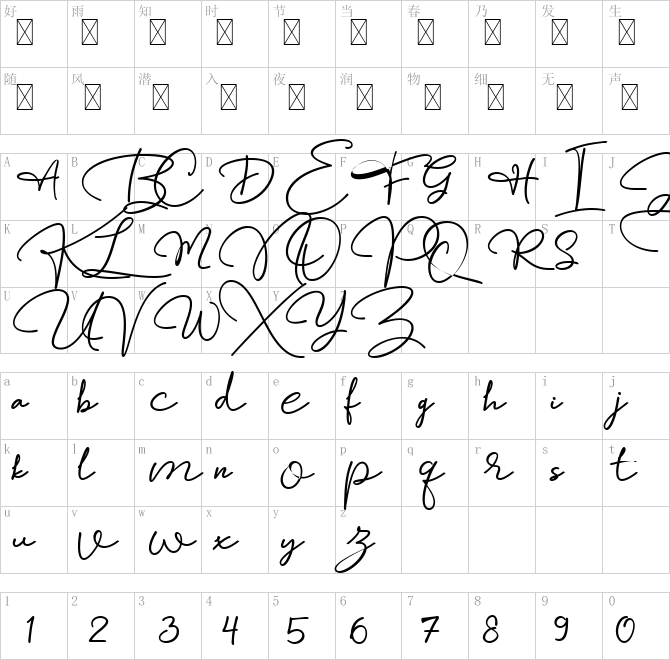 好 雨 知 时 节 当 春 乃 发 生
随 风 潜 入 夜 润 物 细 无 声
A B C D E F G H I J
A B C D E F G H I J
K L M N O P Q R S T
K L M N O P Q R S T
U V W X Y Z
U V W X Y Z
a b c d e f g h i j
a b c d e f g h i j
k l m n o p q r s t
k l m n o p q r s t
u v w x y z
u v w x y z
1 2 3 4 5 6 7 8 9 0
1 2 3 4 5 6 7 8 9 0